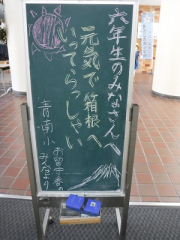 六年生のみなさんへ
元気で箱根へ
いってらっしゃい
青南小
お留守番の
みんなより